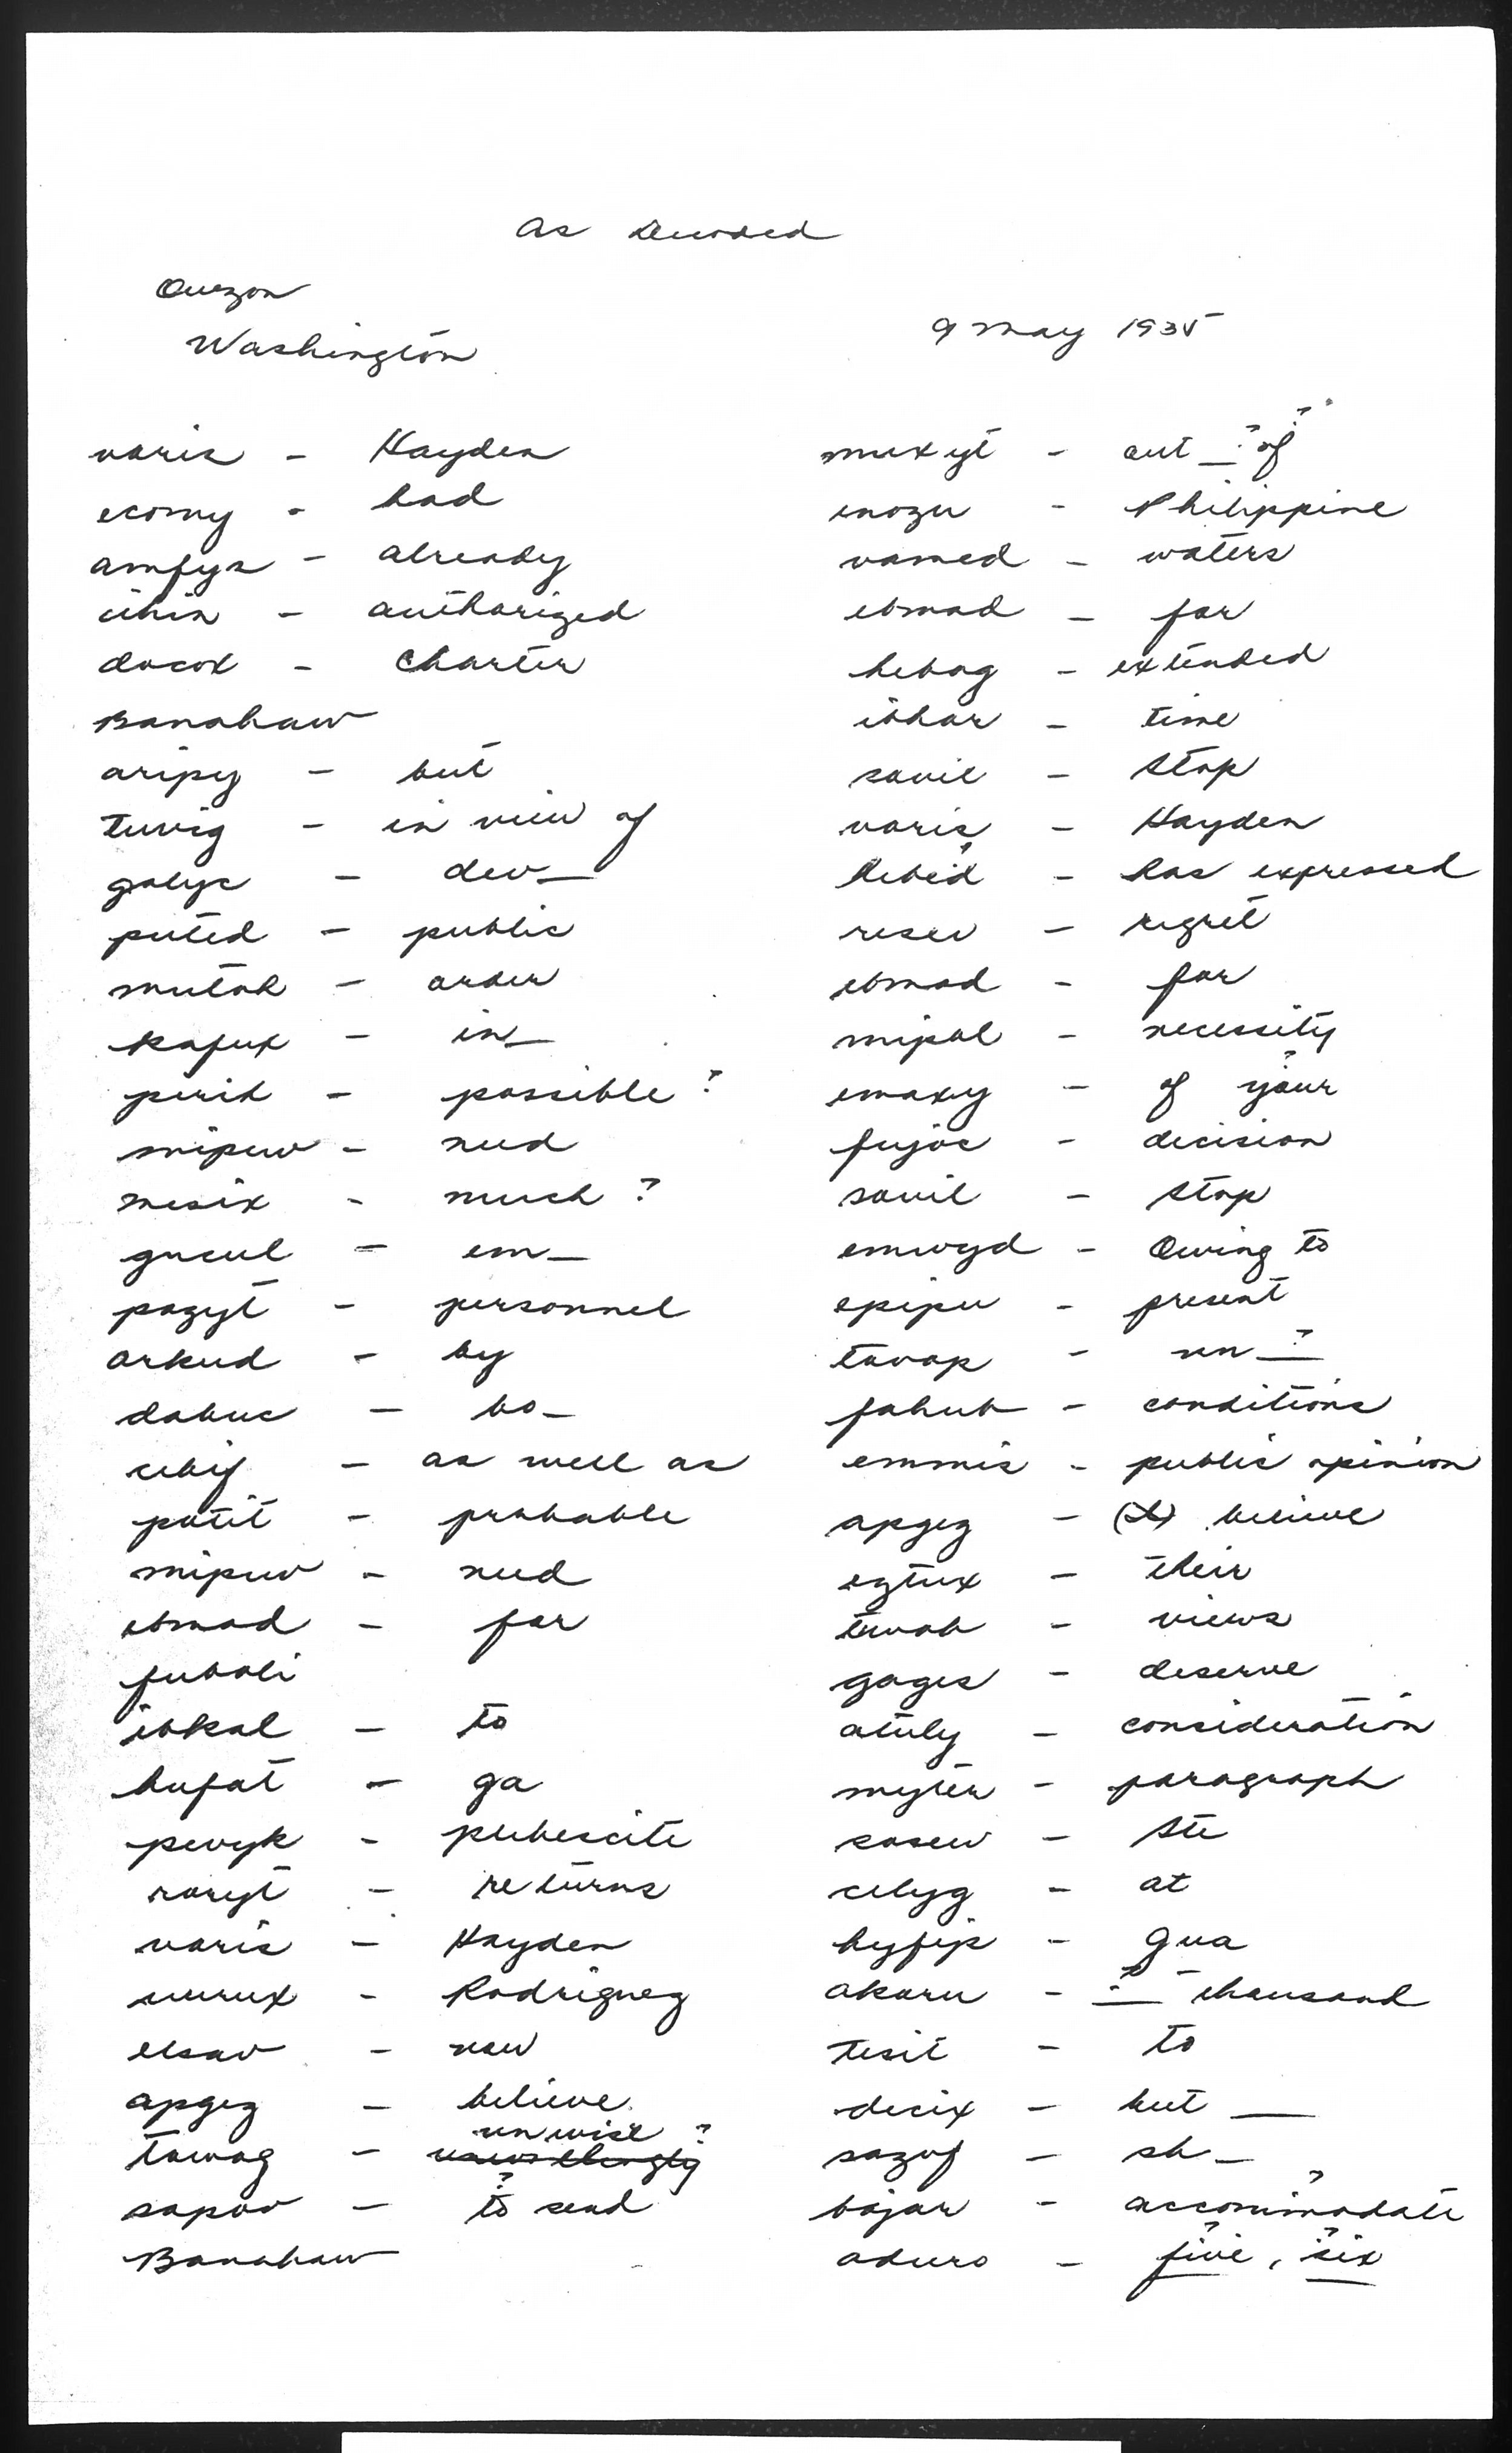 As Decoded
Quezon
Washington
9 May 1935
varis - Hayden
ecomy - had
amfys - already
cihin - authorized
docox - Charter
Banahaw
aripy - but
tuvig - in view of
golys - dev_
puted - public
mutah - order
kafux - in_
pirih - possible ?
mipuw - need
mesix - much ?
gucul - em_
pozyt - personnel
arkud - by
dabuc - bo_
cebif - as well as
potit - probable
mipuw - need
ebmad - for
fubali
ibkal - to
hufat - ga
pevyk - plebescite
roryt - returns
varis - Hayden
Rodriguez
elsav - now
apgez - believe
tawag - unwise ?
sapov - to send ?
Banahaw
muxyt - out _ ? of ?
enozu - Philippine
vamed - waters
ebmad - for
hebag - extended
ibhar - time
sovil - Stop
varis - Hayden
hebid - has expressed
resev - regret
ebmad - for
mipal - necessity
emaxy - of your ?
fujoc - decision
sovil - Stop
emwyd - Owing to
epipu - present
tavap - un _ ?
fahub - conditions
emmis - public opinion
apgez - (I) believe
eztux - their
tuvab - views
gages - deserve
atuly - consideration
myter - paragraph
sosew - Ste
celyg - at
hyfip - gua
akoru - _ ? thousand
tesit - to
decix - but __
sazof - sh_
bajar - accommodate ?
aduro - five ?, six ?